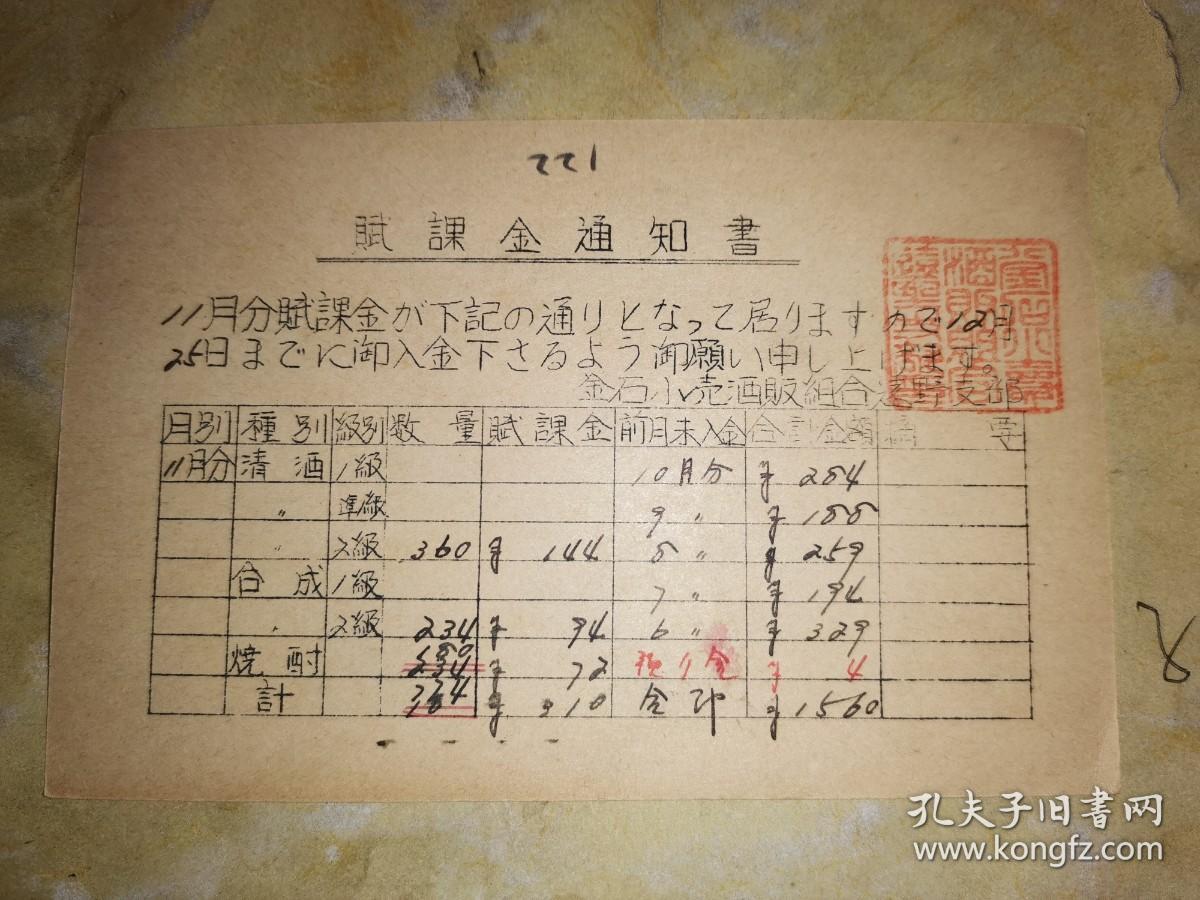 221
賦課金通知書
11月分賦課金が下記の通りとなって居りますので12月
25日までに御入金下さるよう御願い申し上げます。
釜石小売酒販組合遠野支部
月別 種別 級別 数量 賦課金 前月未入金 合計金額 摘要
11月分 清酒 1級 10月分 284
〃 準級 9〃 188
〃 2級 360 144 8〃 259
合成 1級 7〃 194
〃 2級 234 94 6〃 329
焼酎 180 234 72 預り金 4
計 310 合計 1560
孔夫子旧书网
www.kongfz.com